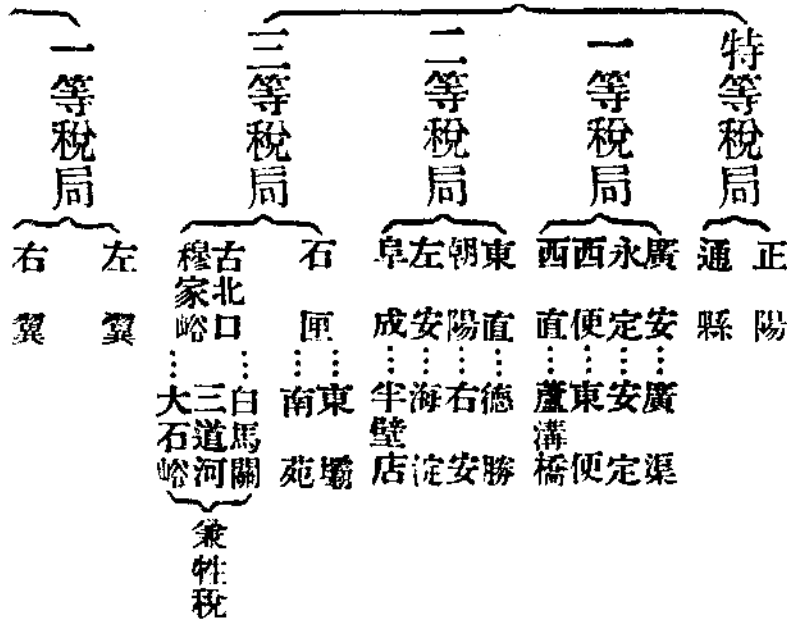 特等稅局
正陽
通縣
一等稅局
廣安……廣渠
永定……安定
西便……東便
西直……蘆溝橋
二等稅局
東直……德勝
朝陽……右安
左安……海淀
阜成……半壁店
三等稅局
石匣……東壩
……南苑
古北口……白馬關
三道河
穆家峪……大石峪
兼牲稅
一等稅局
左翼
右翼